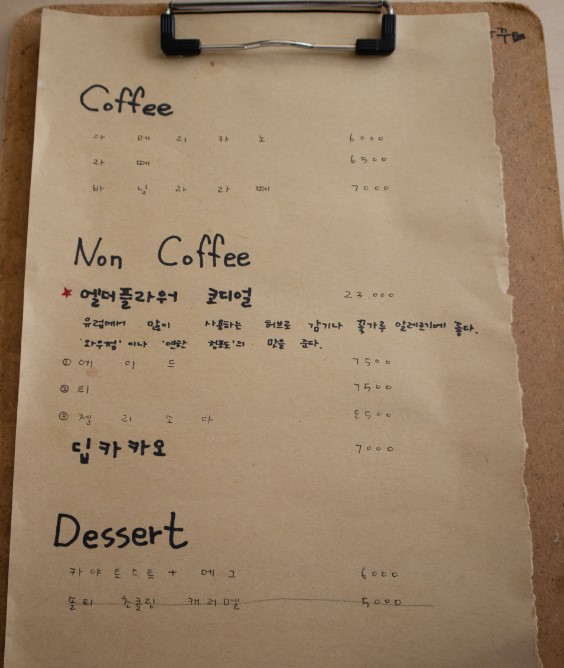 Coffee
아메리카노 6000
라떼 6500
바닐라라떼 7000
Non Coffee
★ 엘더플라워 코디얼 23000
유럽에서 많이 사용하는 허브로 감기나 꽃가루 알레르기에 좋다.
이나 '연한 청포도'의 맛을 준다.
① 에이드 7500
② 티 7500
③ 젤리소다 8500
딥카카오 7000
Dessert
카야토스트 + 에그 6000
솔티 초콜릿 캐러멜 5000